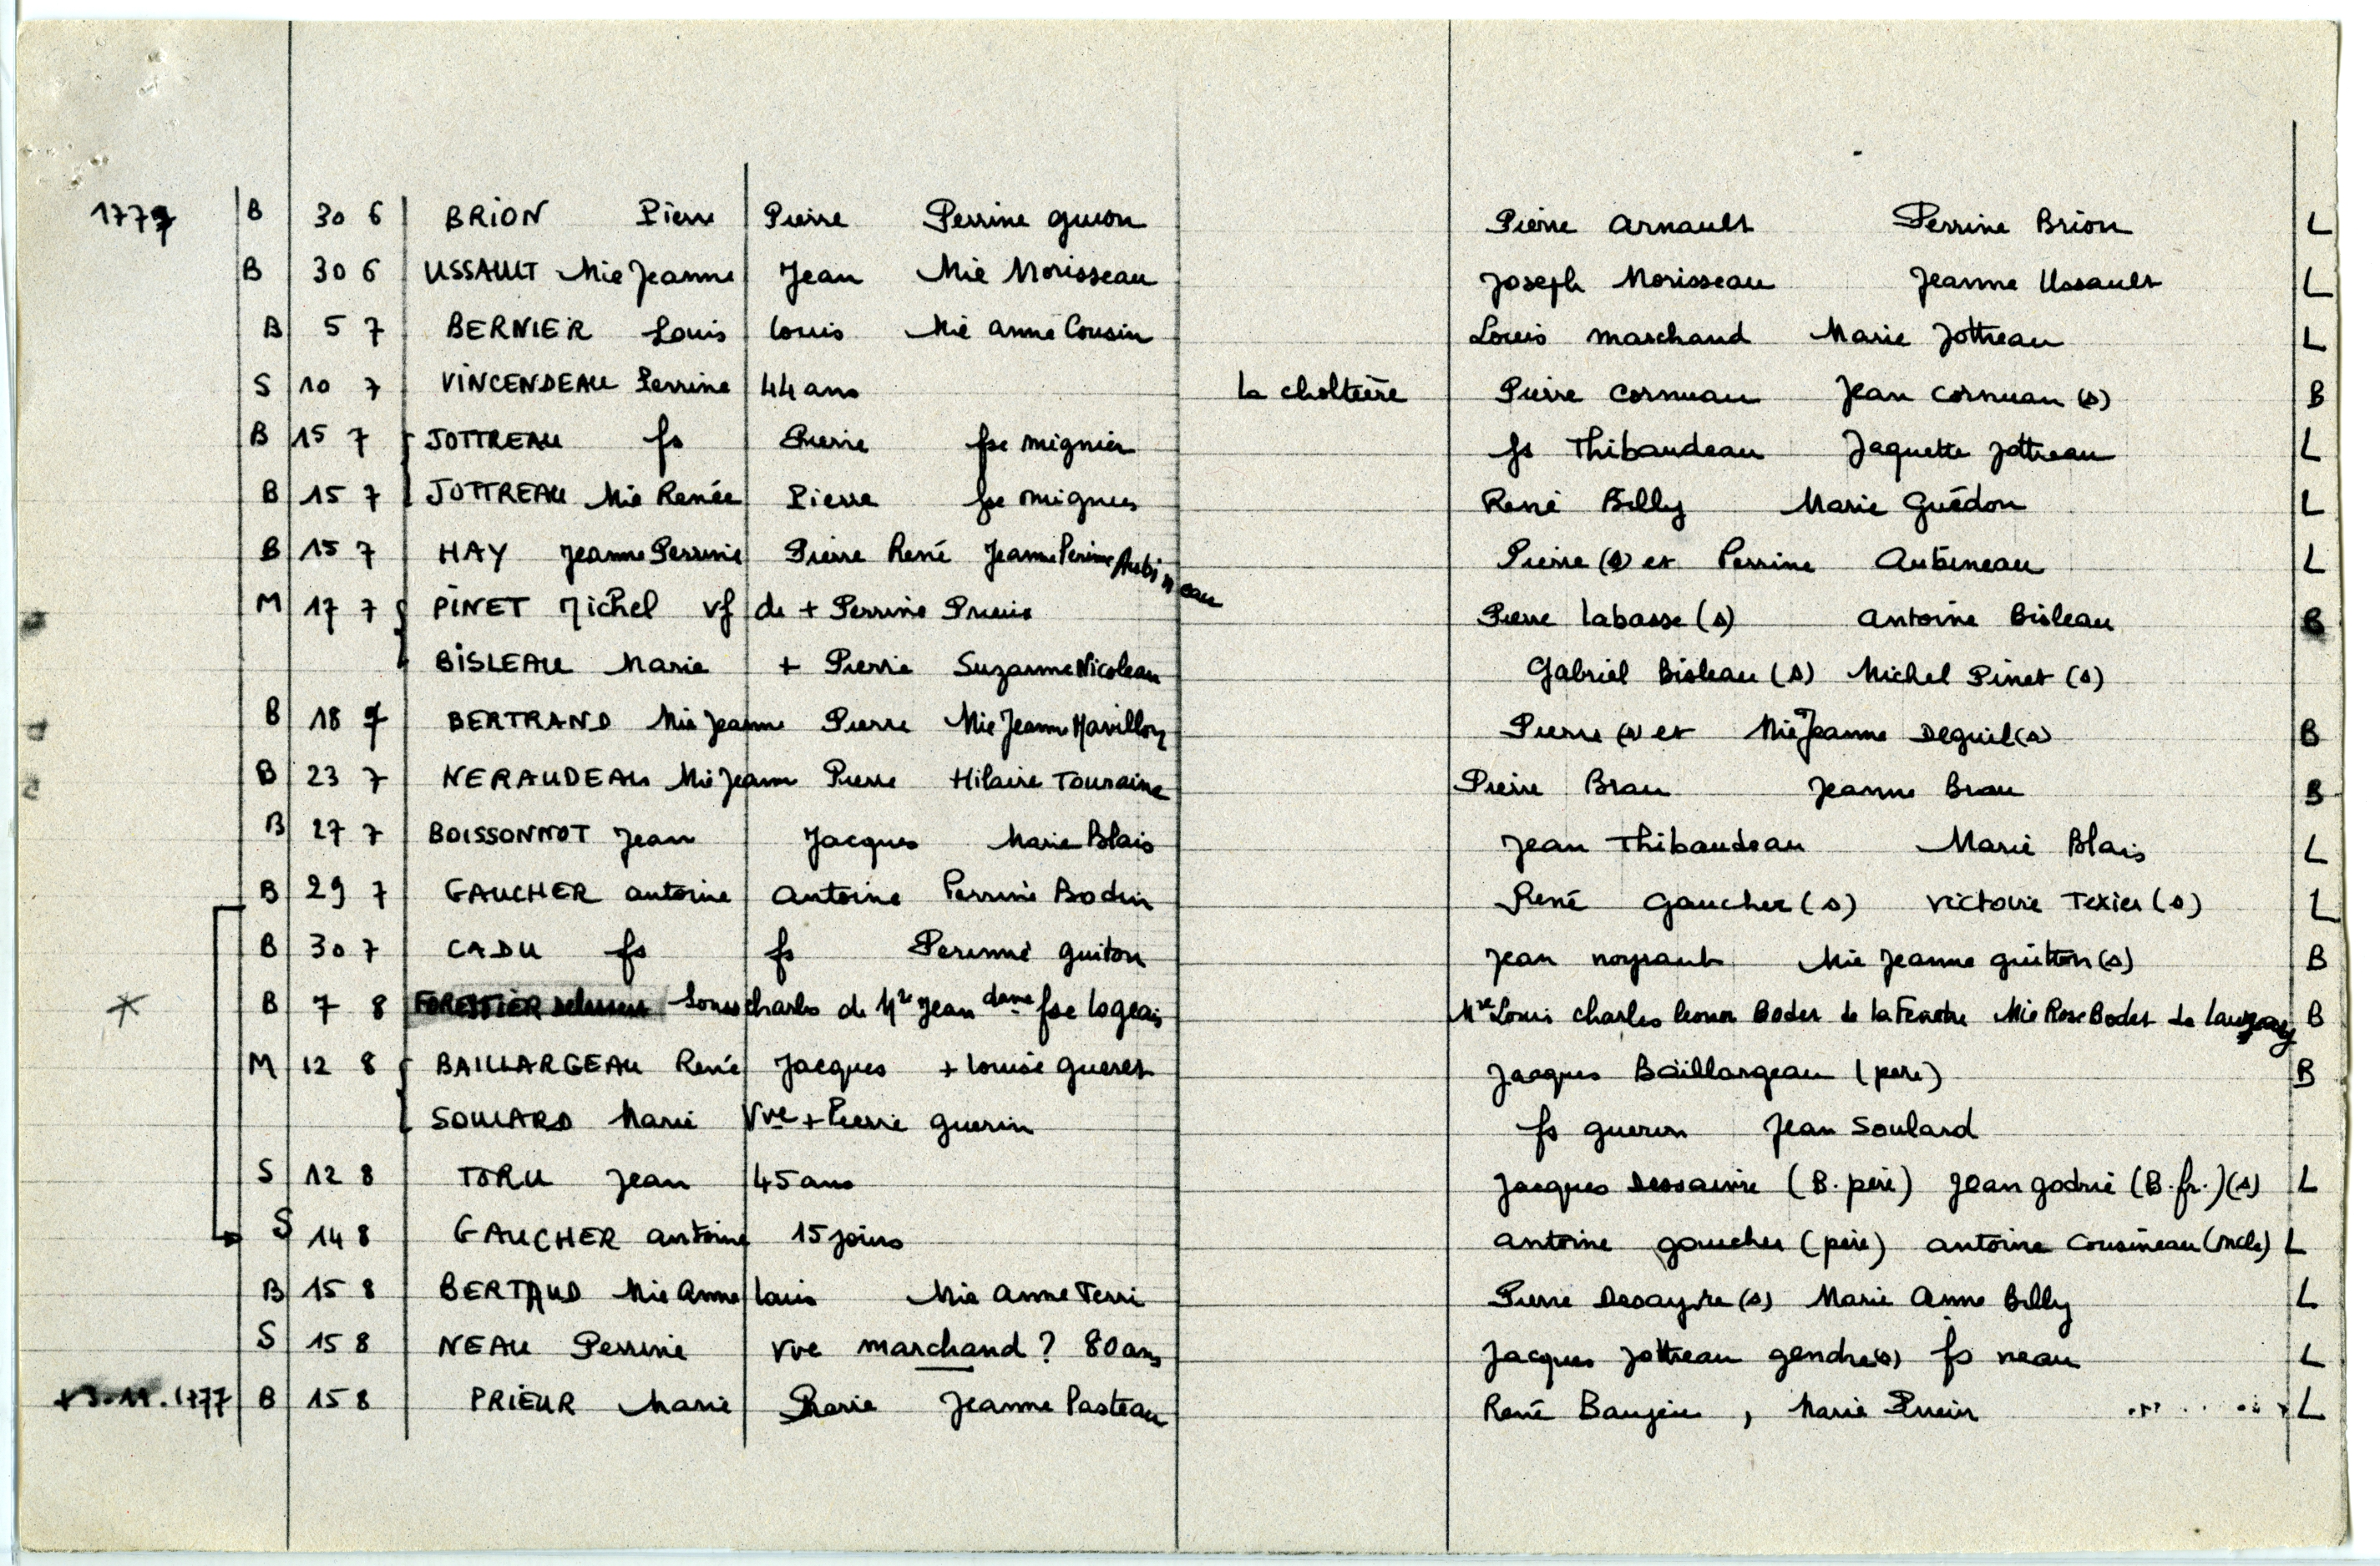 1777 B 30 6 BRION Pierre Pierre Perrine guion Pierre Arnault Perrine Brion L
B 30 6 USSAULT Mie Jeanne Jean Mie Morisseau Joseph Morisseau Jeanne Ussault L
B 5 7 BERNIER Louis Louis Mie anne Cousin Louis marchand Marie Jottreau L
S 10 7 VINCENDEAU Perrine 44 ans la choltière Pierre Cornuau Jean Cornuau (s) B
B 15 7 JOTTREAU fs Pierre fse mignier fs Thibaudeau Jaquette Jottreau L
B 15 7 JOTTREAU Mie Renée Pierre fse mignier René Billy Marie Guédon L
B 15 7 HAY Jeanne Perrine Pierre René Jeanne Perrine Aubineau Pierre (s) et Perrine Aubineau L
M 17 7 PINET Michel vf de + Perrine Prieur Pierre Labasse (s) Antoine Bisleau B
BISLEAU Marie + Pierre Suzanne Nicoleau Gabriel Bisleau (s) Michel Pinet (s)
B 18 7 BERTRAND Mie Jeanne Pierre Mie Jeanne Mavillon Pierre (s) et Mie Jeanne Deguil (s) B
B 23 7 NERAUDEAU Mie Jeanne Pierre Hilaire Touraine Pierre Brau Jeanne Brau B
B 27 7 BOISSONNOT Jean Jacques Marie Blais Jean Thibaudeau Marie Blais L
B 29 7 GAUCHER antoine Antoine Perrine Bodin René Gaucher (s) Victoire Texier (s) L
B 30 7 CADU fs fs Perinne guiton Jean noyrault Mie Jeanne guitton (s) B
* B 7 8 FORESTIER Louis Charles de Mre Jean dame fse logeais Mre Louis Charles leonor Bodet de la Fenêtre Mie Rose Bodet de B
M 12 8 BAILLARGEAU René Jacques + Louise gueret Jacques Baillargeau (pere) B
SOULARD Marie Vve + Pierre guerin fs guerin Jean Soulard
S 12 8 TORU Jean 45 ans Jacques Dessaivre (B. père) Jean godrie (B. fr.) (s) L
S 14 8 GAUCHER antoine 15 jours antoine gaucher (père) antoine cousineau (oncle) L
B 15 8 BERTAUD Mie Anne Louis Mie Anne Terri Pierre Desayvre (s) Marie Anne Billy L
S 15 8 NEAU Perrine vve marchand ? 80 ans Jacques Jottreau gendre (s) fs neau L
+ 3.11.1777 B 15 8 PRIEUR Marie Pierre Jeanne Pasteau René Baujeu, Marie Prieur L